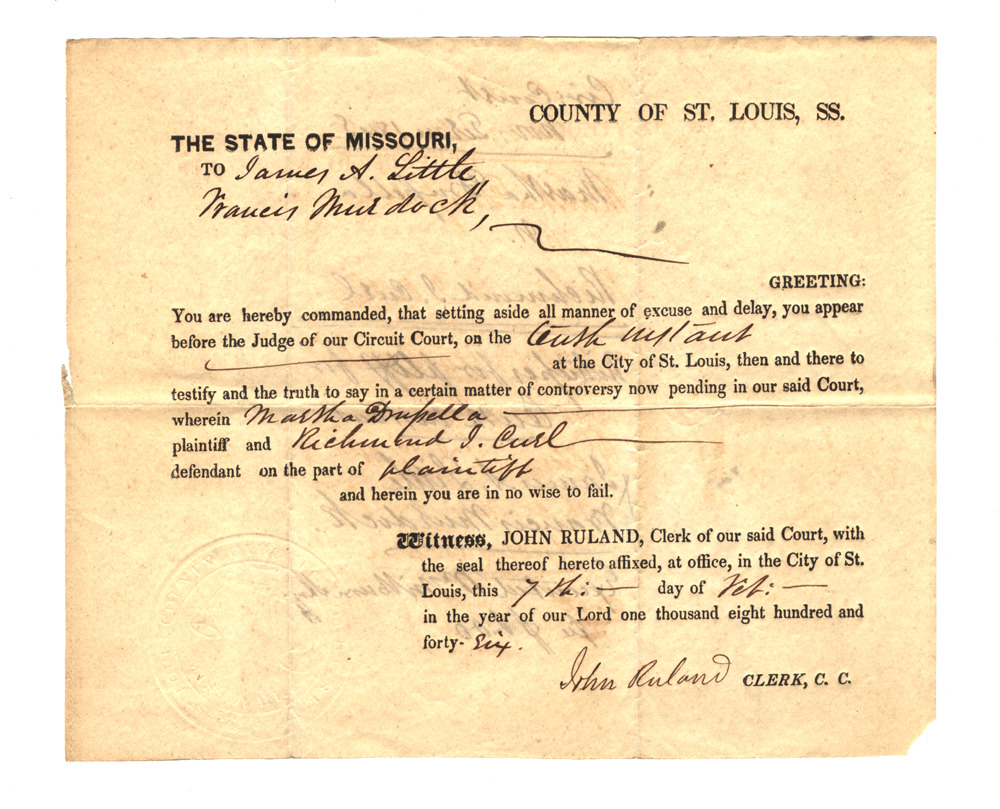 COUNTY OF ST. LOUIS, SS.
THE STATE OF MISSOURI,
TO James A. Little,
Francis Murdock,
GREETING:
You are hereby commanded, that setting aside all manner of excuse and delay, you appear
before the Judge of our Circuit Court, on the tenth instant
at the City of St. Louis, then and there to
testify and the truth to say in a certain matter of controversy now pending in our said Court,
wherein Martha Drusella
plaintiff and Richmond J. Curl
defendant on the part of plaintiff
and herein you are in no wise to fail.
Witness, JOHN RULAND, Clerk of our said Court, with
the seal thereof hereto affixed, at office, in the City of St.
Louis, this 7th: day of Feb:
in the year of our Lord one thousand eight hundred and
forty- Six.
John Ruland CLERK, C. C.